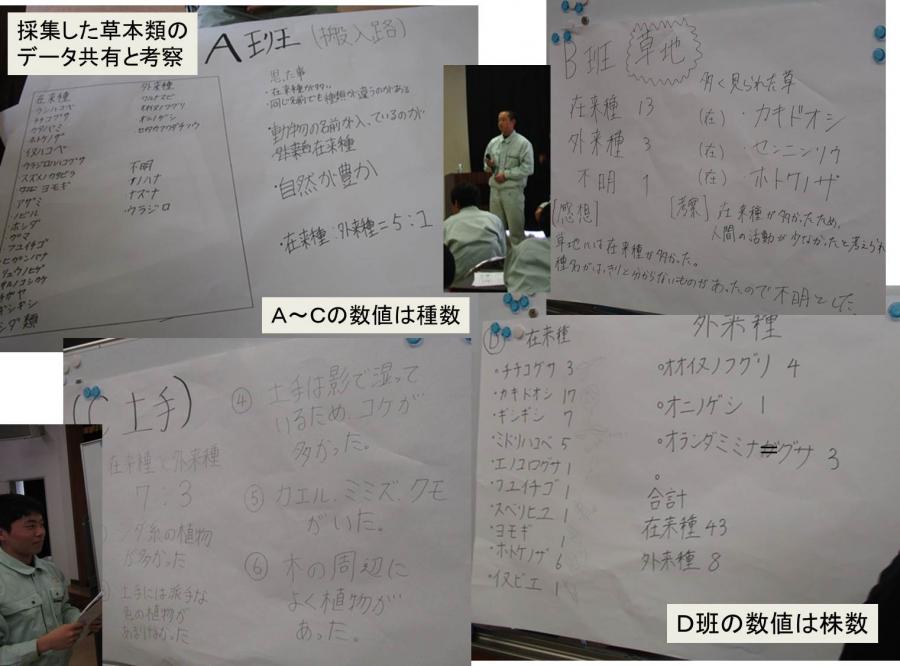 採集した草本類の
データ共有と考察
A班 (搬入路)
在来種
ウシハコベ
チチコグサ
カタバミ
ホトケノザ
イヌハコベ
ウラジロハハコグサ
スズメノカタビラ
ヨモギ
アザミ
ノビル
ホシダ
クマ
フユイチゴ
ヒガンバナ
リュウノヒゲ
チガヤ
ギシギシ
シダ類
外来種
ワルナスビ
オオイヌノフグリ
オニノゲシ
セイタカアワダチソウ
不明
ナズナ
ウラジロ
思った事
・在来種が多い
・同じ名前でも種類が違うのがある
・動物の名前が入っているのが
外来種 在来種
・自然が豊か
・在来種:外来種=5:1
B班 草地
在来種 13
外来種 3
不明 1
多く見られた草
(在)・カキドオシ
(在)・センニンソウ
(在)・ホトケノザ
[感想]
草地には在来種が多かった。
種名がはっきりと分からないものがあったので不明とした。
[考察] 在来種が多かったため、
人間の活動が少なかったと考えられ
A～Cの数値は種数
(C 土手)
在来種と外来種
7:3
シダ系の植物
が多かった
土手には派手な
色の植物が
あまりなかった
④ 土手は影で湿って
いるため、コケが
多かった。
⑤ カエル、ミミズ、クモ
がいた。
⑥ 木の周辺に
よく植物が
あった。
D 在来種
・チチコグサ 3
・カキドオシ 17
・ギシギシ 7
・ミドリハコベ 5
・エノコログサ 1
・フユイチゴ 1
・スベリヒユ 1
・ヨモギ 1
・ホトケノザ 6
・イヌビエ 1
外来種
オオイヌノフグリ 4
オニノゲシ 1
オランダミミナグサ 3
合計
在来種 43
外来種 8
D班の数値は株数